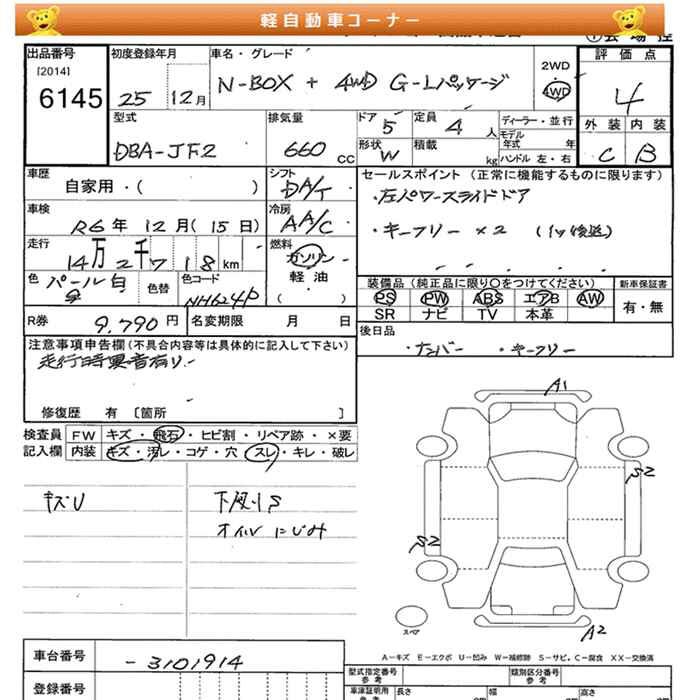 軽自動車コーナー
出品番号 初度登録年月 車名・グレード 評価点
[2014]
6145 25 12月 N-BOX + 4WD G-Lパッケージ 2WD 4WD 4
型式 排気量 ドア 定員 ディーラー・並行 外装 内装
DBA-JF2 660 CC 5 4 人 モデル年式 年 C B
形状 W 積載 kg ハンドル 左・右
車歴 シフト セールスポイント(正常に機能するものに限ります)
自家用・( ) DA/T ・左パワースライドドア
車検 冷房 ・キーフリー×2
R6年 12月(15日) AA/C
走行 燃料
14万2千718km ガソリン
軽・油
( )
色 パール白 色替 色コード NH624P
装備品(純正品に限り○をつけてください) 新車保証書
PS PW ABS エアB AW 有・無
SR ナビ TV 本革
R券 9.790円 名変期限 月 日 後日品
・ナンバー ・キーフリー
注意事項申告欄(不具合内容等は具体的に記入して下さい)
走行時異音有り
修復歴 有 〔箇所 〕
検査員 FW キズ・飛石・ヒビ割・リペア跡・×要
記入欄 内装 キズ・汚レ・コゲ・穴 スレ・キレ・破レ
キズU 下廻りS
オイルにじみ
A1
S2
S2
A2
スペア
A-キズ E-エクボ U-凹み W-補修跡 S-サビ C-腐食 XX-交換済
車台番号 -3101914 型式指定番号 類別区分番号
参考 参考
登録番号 車庫証明用 長さ 幅 高さ